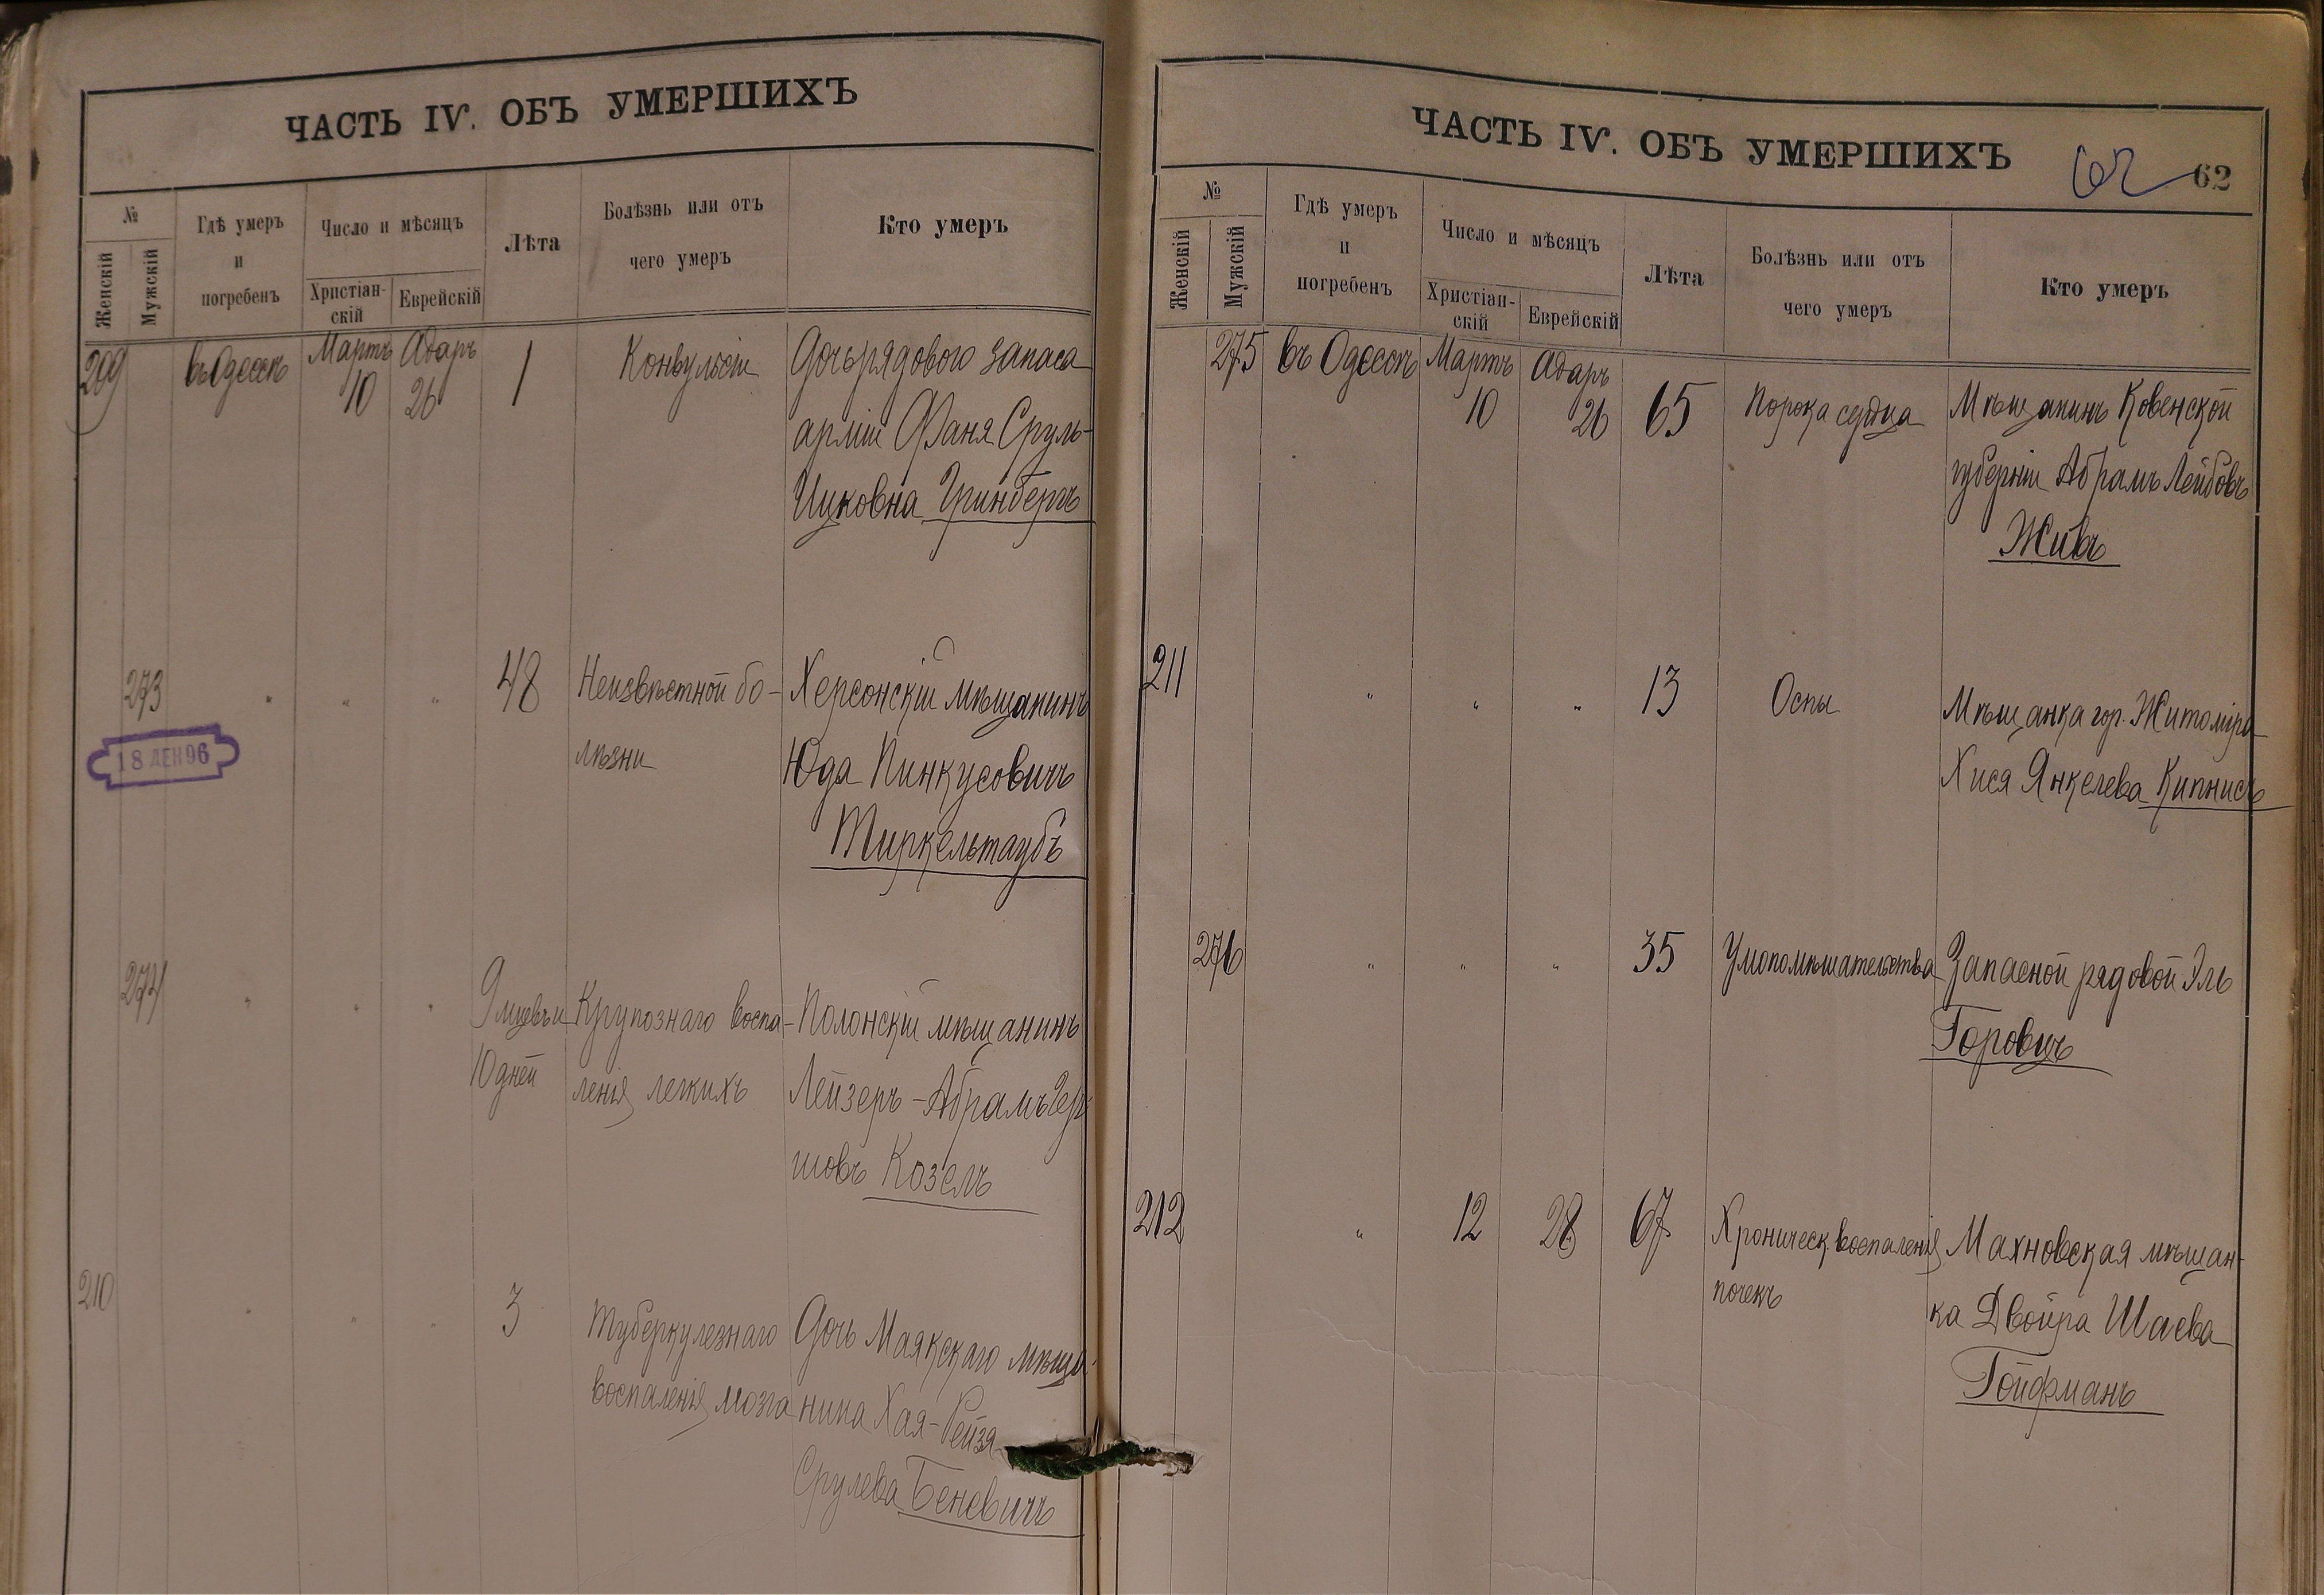 ЧАСТЬ IV. ОБЪ УМЕРШИХЪ
№
Женскій
Мужскій
Гдѣ умеръ
и
погребенъ
Число и мѣсяцъ
Христіан-
скій
Еврейскій
Лѣта
Болѣзнь или отъ
чего умеръ
Кто умеръ
209 въ Одессѣ Мартъ Адаръ 1 Конвульсіи Дочь рядового запаса
10 26 арміи Фаня Сруль-
Ицковна Гринбергъ
273 " " " 48 Неизвѣстной бо- Херсонскій мѣщанинъ
18 ДЕК 96
лѣзни Юда Пинкусовичъ
Тиркельтаубъ
274 " " " 9 мцевъ и Крупознаго воспа- Полонскій мѣщанинъ
10 дней ленія легкихъ Лейзеръ-Абрамъ Гер
шовъ Козелъ
210 " " " 3 Туберкулезнаго Дочь Маякскаго мѣща-
воспаленія мозга нина Хая-Рейзя
Срулева Беневичъ
ЧАСТЬ IV. ОБЪ УМЕРШИХЪ
62 62
№
Женскій
Мужскій
Гдѣ умеръ
и
погребенъ
Число и мѣсяцъ
Христіан-
скій
Еврейскій
Лѣта
Болѣзнь или отъ
чего умеръ
Кто умеръ
275 въ Одессѣ Мартъ Адаръ 65 Порока сердца Мѣщанинъ Ковенской
10 26 губерніи Абрамъ Лейбовъ
Живъ
211 " " " 13 Оспы Мѣщанка гор. Житоміра
Хися Янкелева Кипнисъ
276 " " " 35 Умопомѣшательства Запасной рядовой Эль
Горовицъ
212 " 12 28 67 Хроническ. воспаленія Махновская мѣщан-
почекъ ка Двойра Шаева
Гойфманъ